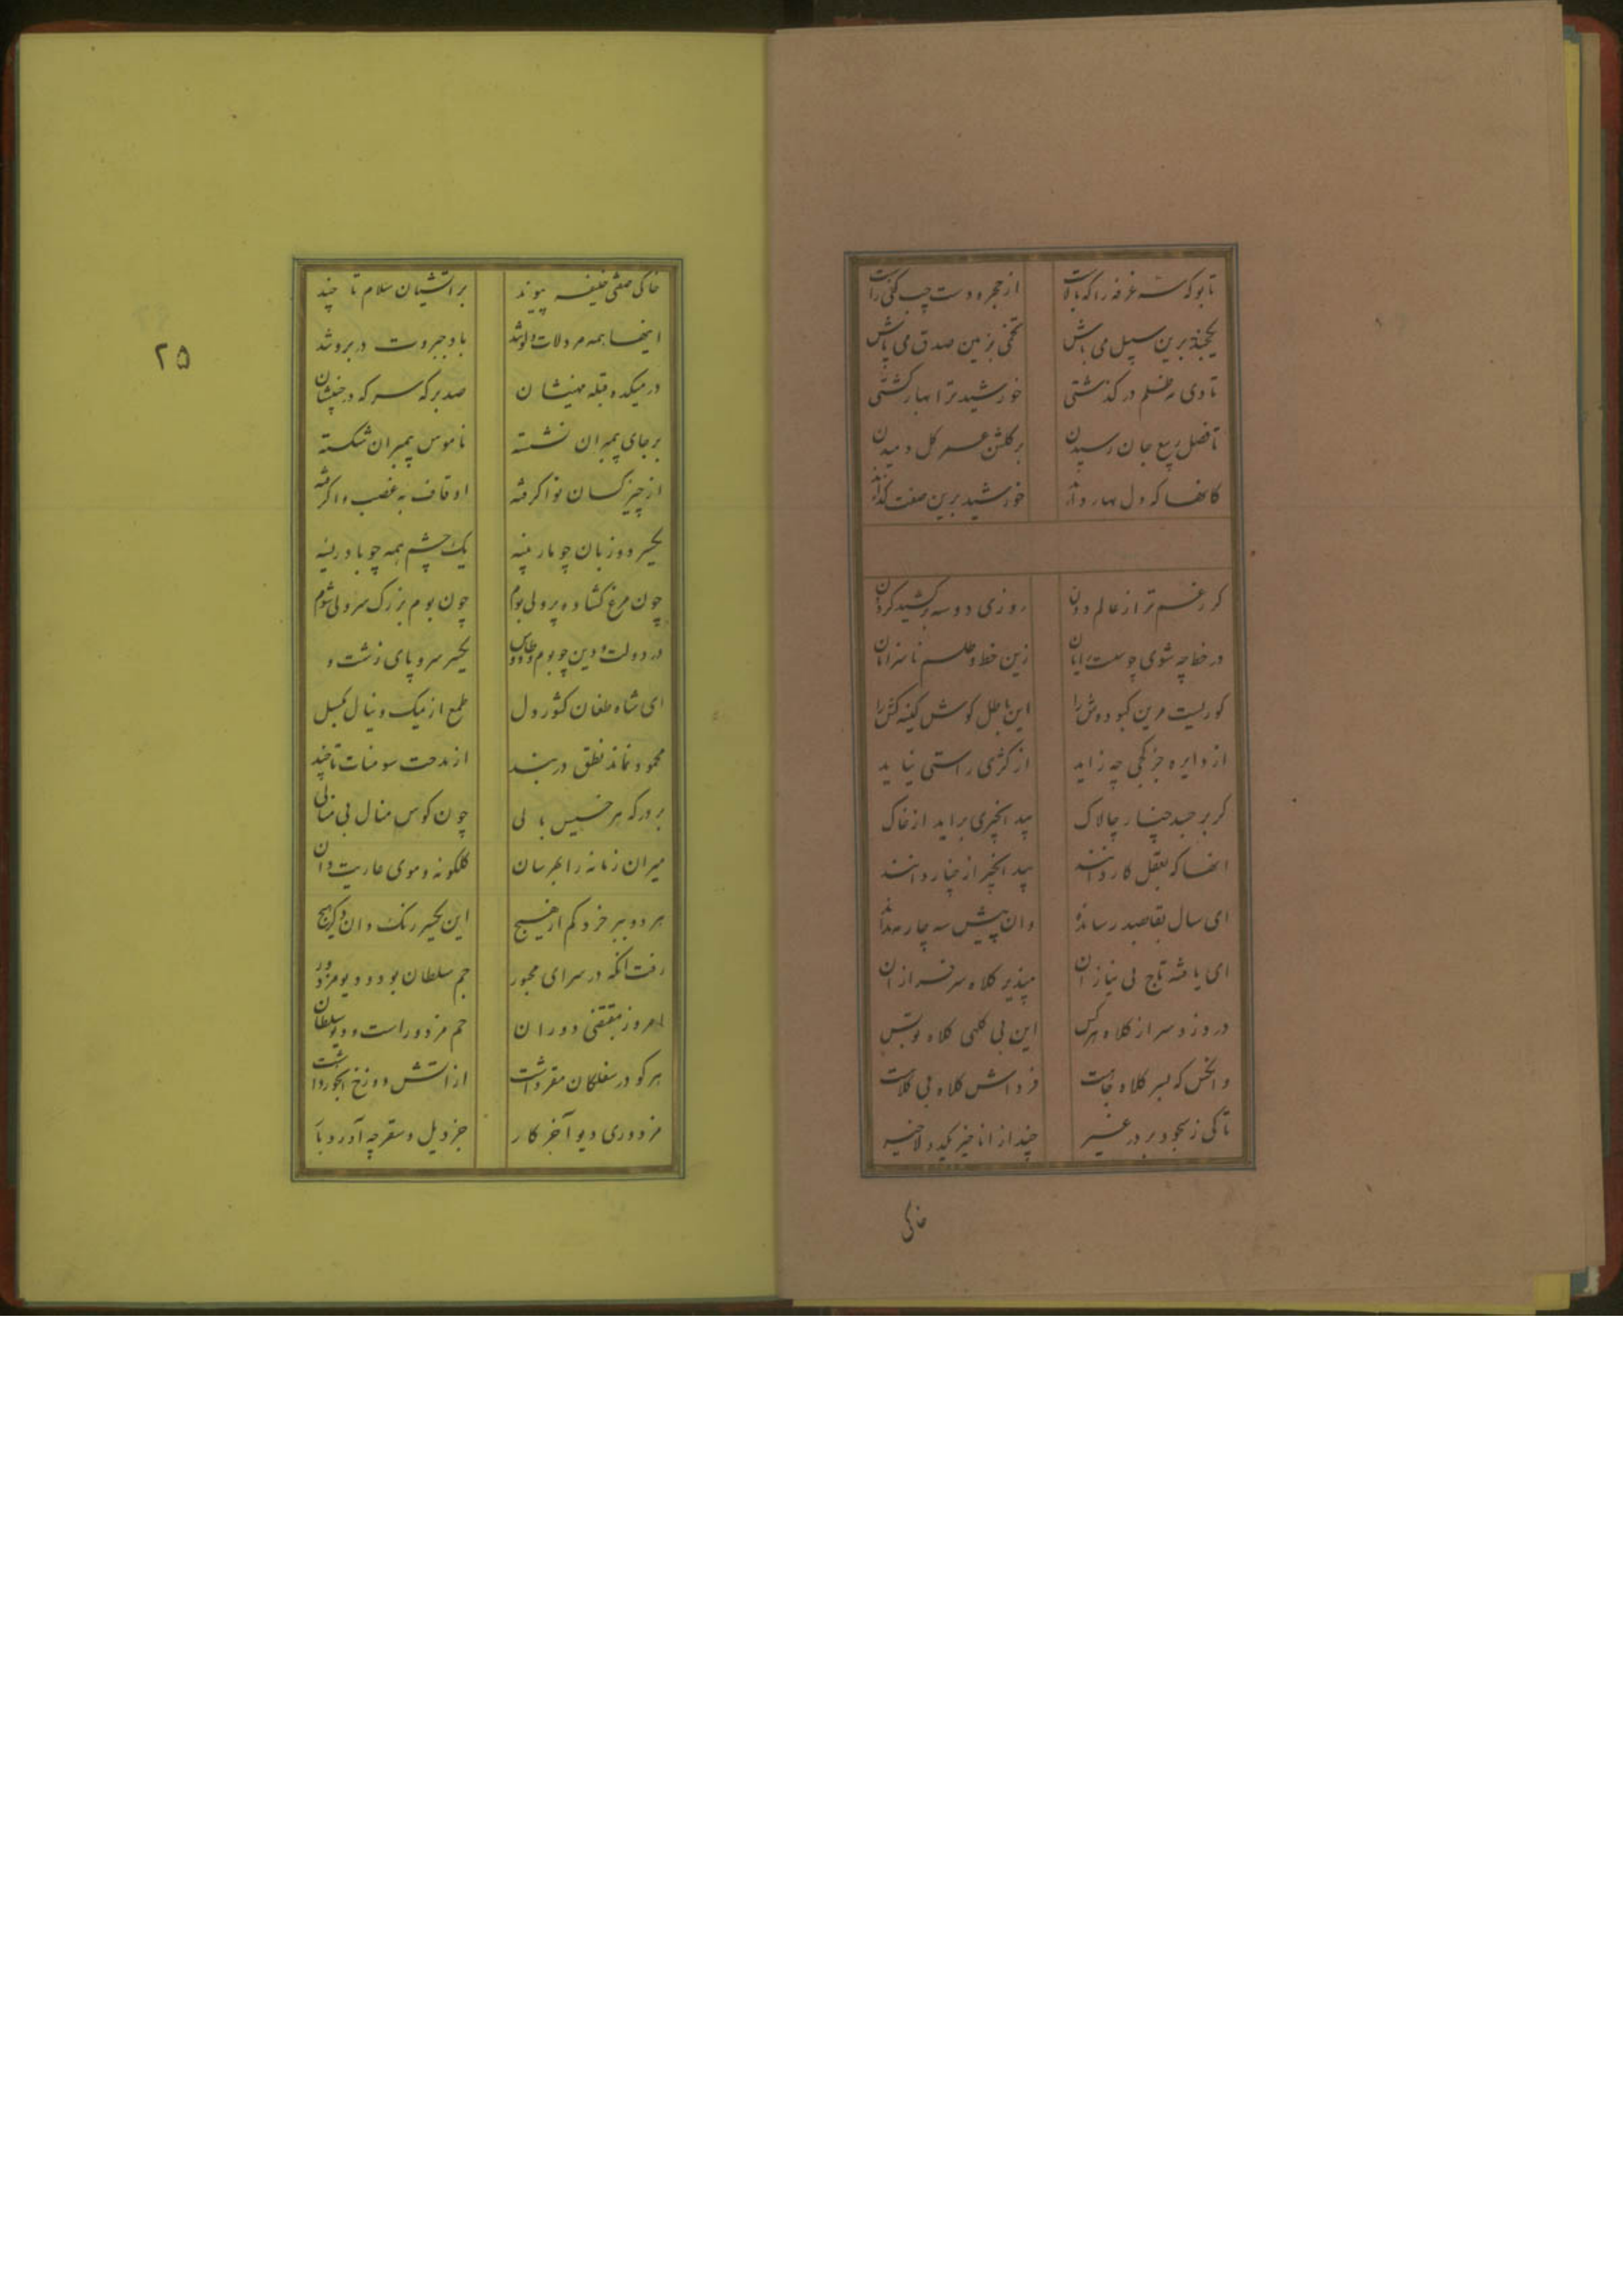 تا بوکه سه غرفه را که بالاست از حجره دست چپ کنی راست
یکچند برین سپل می باش تخمی بزمین صدق می پاش
تا دی ظلم در گذشتی خورشید ترا بهار گشتی
تا فصل ربیع جان رسیدن بر گلشن عمر گل دمیدن
کانها که دل بهار دارند خورشید برین صفت گذارند
کر رغم تر از عالم دون روزی دوسه برکشید گردون
در خط چه شوی چو سست رایان زین خط و طلسم ناسزایان
کوریست مرین کبودوش را این باطل کوش کینه کش را
از دایره جز کجی چه زاید از کژی راستی نیاید
کر بر جهد چنار چالاک بید انجیری براید از خاک
انها که بعقل کار دانند بید انجیر از چنار دانند
ای سال بقا صد رسانده وان پیش سه چار مه نماند
ای یافته تاج بی نیازان مپذیر کلاه سرفرازان
در دزد سر از کلاه هرکس این بی کلهی کلاه تو بس
وانکس که بسر کلاه جاهست فرداش کلاه بی کلاهست
تا کی ز نجود بر در غیر چند از انا خیر بگذر و لاخیر
خاکی
۲۵
خاکی صفتی خلیفه پیوند بر آتشیان سلام تا چند
اینها همه مرد لات و لوشند باد جبروت در بروشند
در میکده قبله مهینشان صد برکه سرکه در جبینشان
بر جای پیمبران نشسته ناموس پیمبران شکسته
از چیز کسان نوا گرفته اوقاف به غصب وا گرفته
یکسر دو زبان چو مار پینه یک چشم همه چو بادریسه
چون مرغ گشاده پر ولی بوم چون بوم بزرگ سر ولی شوم
در دولت و دین چو بوم و طاوس یکسر سر و پای زشت و
ای شاه طغان کشور دل طمع از یک و ینال بگسل
محمود نماند نطق دربند از مدحت سومنات تا چند
بر درگه هر خسیس بالی چون کوس منال بی منالی
میران زمانه را بهر سان گلگونه و موی عاریت دان
هر دو ببر خرد کم از هیچ این یکسر رنگ و ان دگر پیچ
رفت آنکه در سرای مجبور جم سلطان بود و دیو مزدور
امروز بمقتضی دوران جم مزدور است و دیو سلطان
هر کو در سفلگان مقر داشت از آتش دوزخ ابخور داشت
مزدوری دیو آخر کار جز ویل و سقر چه آدرد بار